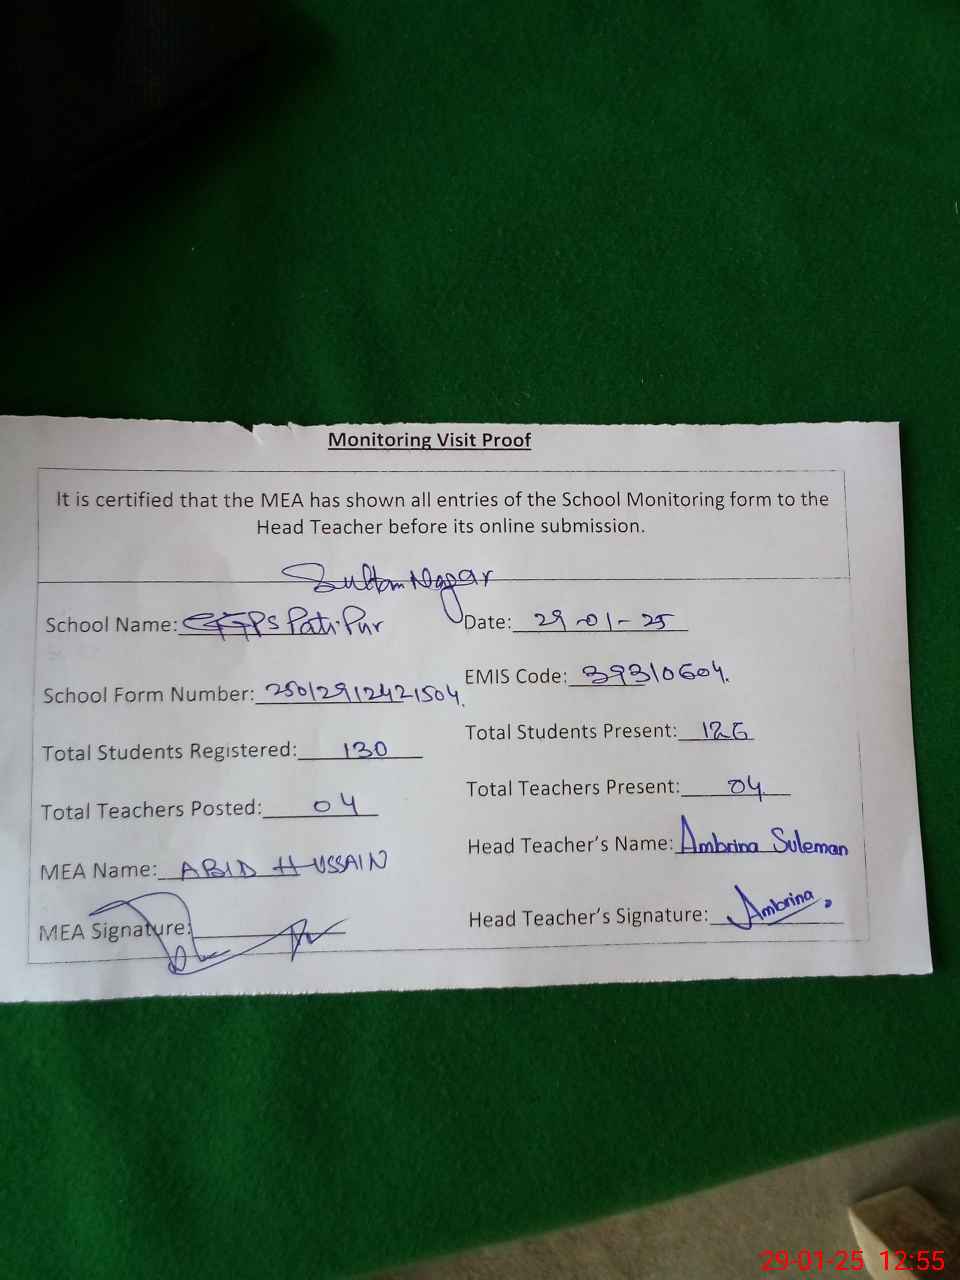 Monitoring Visit Proof
It is certified that the MEA has shown all entries of the School Monitoring form to the
Head Teacher before its online submission.
Sultan Nagar
School Name: GGPS Pati Pur
Date: 29-01-25
School Form Number: 25012912421504.
EMIS Code: 39310604.
Total Students Registered: 130
Total Students Present: 126
Total Teachers Posted: 04
Total Teachers Present: 04
MEA Name: ABID HUSSAIN
Head Teacher's Name: Ambrina Suleman
MEA Signature:
Head Teacher's Signature: Ambrina
29-01-25 12:55